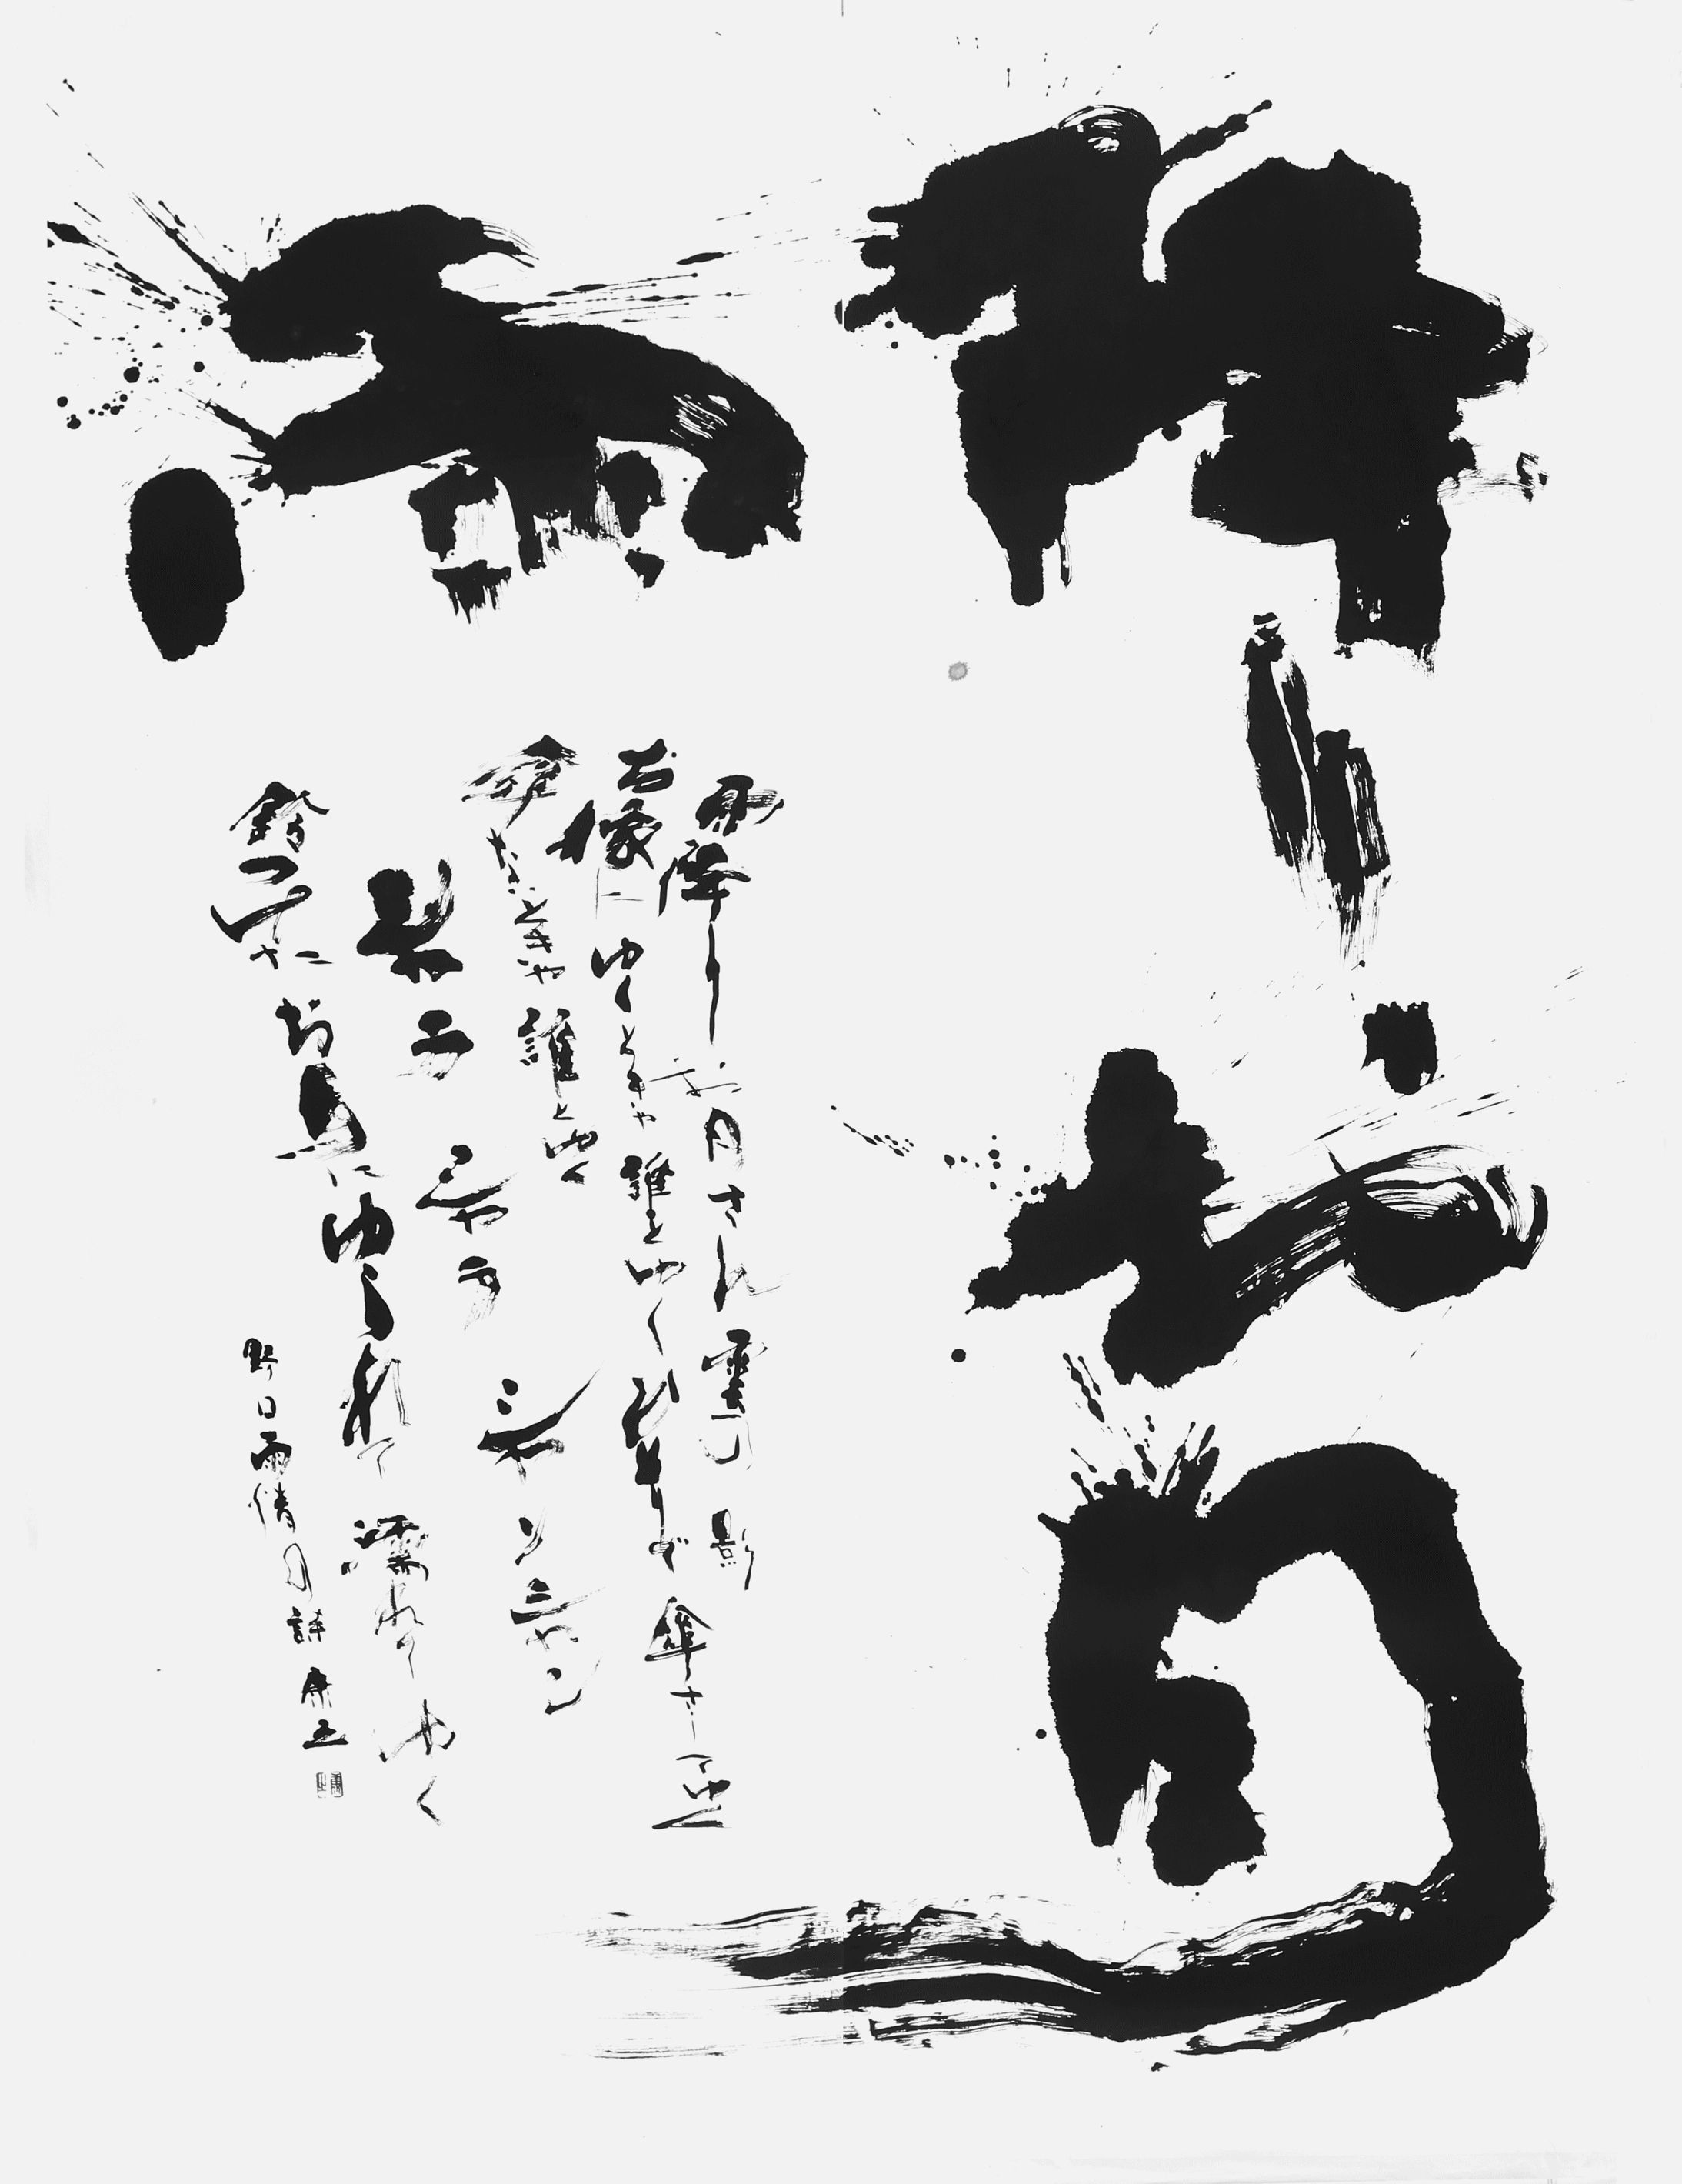 降りお月
雨
雨降りお月さん雲の影
お嫁にゆくときゃ誰とゆくひとりで傘さしてゆく
傘ないときゃ誰とゆく
しゃらしゃらしゃんしゃん
鈴つけたお馬にゆられて濡れてゆく
野口雨情の詩